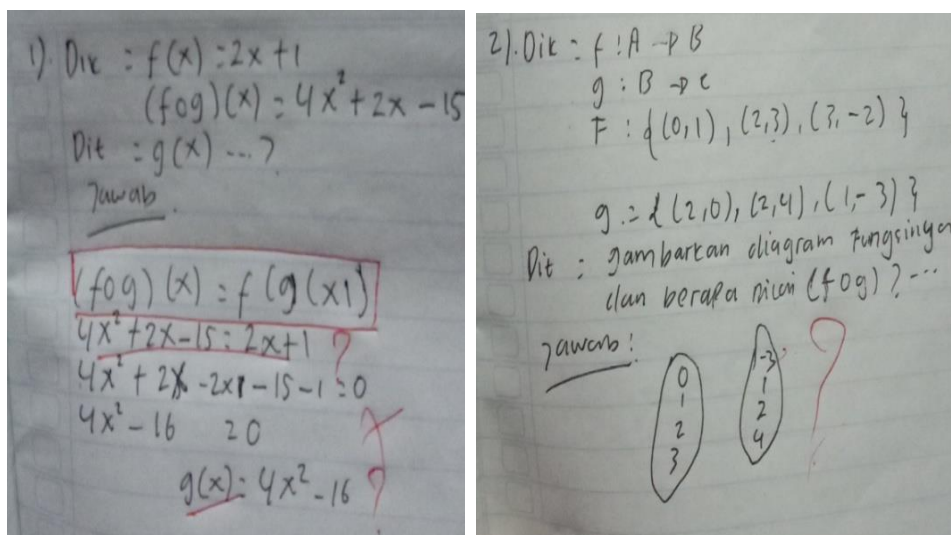 1). Dik : f(x) : 2x + 1
(fog)(x) = 4x² + 2x - 15
Dit : g(x) ... ?
Jawab
(fog)(x) = f(g(x))
4x² + 2x - 15 = 2x + 1 ?
4x² + 2x - 2x - 15 - 1 = 0
4x² - 16 = 0
g(x) = 4x² - 16 ?
2). Dik = f : A → B
g : B → C
F : {(0,1), (2,3), (3,-2)}
g := {(2,0), (2,4), (1,-3)}
Dit : gambarkan diagram Fungsinya
dan berapa nilai (fog) ? ...
Jawab :
0
1
2
3
-3
1
2
4
?